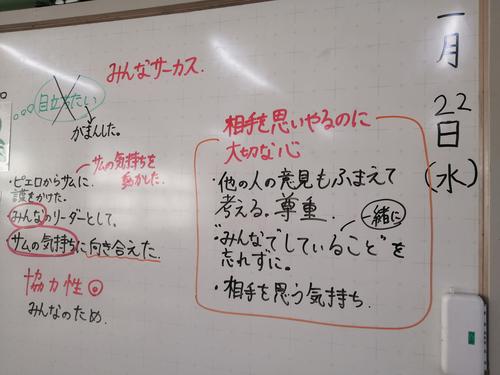 一月
22
日
(水)
みんなサーカス.
目立ちたい
がまんした。
サムの気持ちを
動かした。
・ピエロからサムに
謎をかけた。
・みんなのリーダーとして。
・サムの気持ちに向き合えた.
協力性◎
みんなのため.
相手を思いやるのに
大切な心
・他の人の意見もふまえて
考える。尊重.
一緒に
・"みんなで"していること"を
忘れずに。
・相手を思う気持ち.